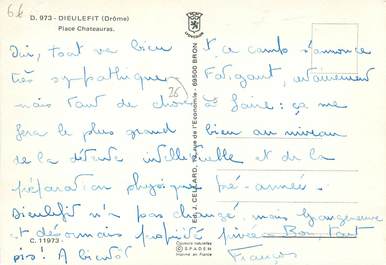 66
D. 973 - DIEULEFIT (Drôme)
Place Chateauras.
Oui, tout va bien et ce camp s'annonce
très sympathique. Fatigant, certainement
mais tant de choses à faire : ça me
fera le plus grand bien au niveau
de la détente intellectuelle et de la
préparation physique pré-année.
Dieulefit n'a pas changé, mais
est désormais propriété privée. Bon, tant
pis. A bientôt
François
26
Ed. J. CELLARD, rue de l'Economie - 69500 BRON
C. 11973
Couleurs naturelles
SPADEM
Imprimé en France